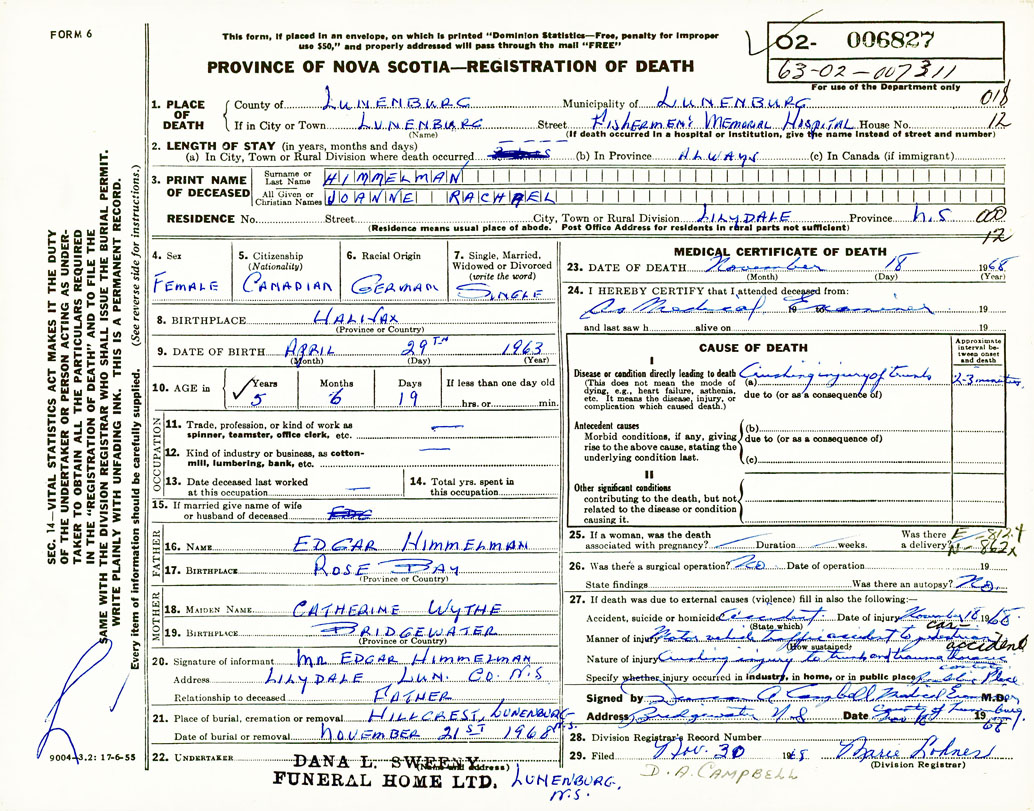 FORM 6
This form, if placed in an envelope, on which is printed "Dominion Statistics—Free, penalty for improper
use $50," and properly addressed will pass through the mail "FREE"
PROVINCE OF NOVA SCOTIA—REGISTRATION OF DEATH
02- 006827
63-02-007311
For use of the Department only
018
12
1. PLACE OF DEATH
County of LUNENBURG Municipality of LUNENBURG
If in City or Town LUNENBURG Street FISHERMEN'S MEMORIAL HOSPITAL House No.
(Name) (If death occurred in a hospital or institution, give the name instead of street and number)
2. LENGTH OF STAY (in years, months and days)
(a) In City, Town or Rural Division where death occurred (b) In Province ALWAYS (c) In Canada (if immigrant)
3. PRINT NAME OF DECEASED
Surname or Last Name HIMMELMAN
All Given or Christian Names JOANNE RACHAEL
RESIDENCE No. Street City, Town or Rural Division LILYDALE Province N.S 000
(Residence means usual place of abode. Post Office Address for residents in rural parts not sufficient)
12
4. Sex FEMALE
5. Citizenship (Nationality) CANADIAN
6. Racial Origin GERMAN
7. Single, Married, Widowed or Divorced (write the word) SINGLE
8. BIRTHPLACE HALIFAX
(Province or Country)
9. DATE OF BIRTH APRIL 29TH 1963
(Month) (Day) (Year)
10. AGE in Years Months Days If less than one day old
5 6 19 hrs. or min.
OCCUPATION
11. Trade, profession, or kind of work as
spinner, teamster, office clerk, etc. —
12. Kind of industry or business, as cotton-
mill, lumbering, bank, etc. —
13. Date deceased last worked
at this occupation —
14. Total yrs. spent in
this occupation
15. If married give name of wife
or husband of deceased
FATHER
16. NAME EDGAR HIMMELMAN
17. BIRTHPLACE ROSE BAY
(Province or Country)
MOTHER
18. MAIDEN NAME CATHERINE WYTHE
19. BIRTHPLACE BRIDGEWATER
(Province or Country)
20. Signature of informant MR EDGAR HIMMELMAN
Address LILYDALE LUN. CO. N.S
Relationship to deceased FATHER
21. Place of burial, cremation or removal HILLCREST, LUNENBURG N.S.
Date of burial or removal NOVEMBER 21ST 1968
22. UNDERTAKER
(Name and address)
DANA L. SWEENY
FUNERAL HOME LTD. LUNENBURG,
N.S.
MEDICAL CERTIFICATE OF DEATH
23. DATE OF DEATH November 18 1968
(Month) (Day) (Year)
24. I HEREBY CERTIFY that I attended deceased from:
As Medical Examiner 19 to 19
and last saw h alive on 19
CAUSE OF DEATH
Approximate interval between onset and death
I
Disease or condition directly leading to death
(This does not mean the mode of
dying, e.g., heart failure, asthenia,
etc. It means the disease, injury, or
complication which caused death.)
(a) Crushing injury of trunk 2-3 minutes
due to (or as a consequence of)
Antecedent causes
Morbid conditions, if any, giving
rise to the above cause, stating the
underlying condition last.
(b)
due to (or as a consequence of)
(c)
II
Other significant conditions
contributing to the death, but not
related to the disease or condition
causing it.
25. If a woman, was the death
associated with pregnancy? Duration weeks.
Was there a delivery?
E-812.4
N-862X
26. Was there a surgical operation? No Date of operation 19
State findings Was there an autopsy? No
27. If death was due to external causes (violence) fill in also the following:—
Accident, suicide or homicide Accident Date of injury November 18 1968
(State which)
Manner of injury Motor vehicle traffic accident to pedestrian
car-accident
(How sustained)
Nature of injury Crushing injury to trunk and
Specify whether injury occurred in industry, in home, or in public place Public Place
Signed by Duncan A. Campbell Medical Examiner M.D.
County of Lunenburg
Address Bridgewater N.S Date Nov 18 1968
28. Division Registrar's Record Number
29. Filed Nov. 30 1968 Marie Lohnes
(Division Registrar)
D. A. CAMPBELL
SEC. 14—VITAL STATISTICS ACT MAKES IT THE DUTY
OF THE UNDERTAKER OR PERSON ACTING AS UNDER-
TAKER TO OBTAIN ALL THE PARTICULARS REQUIRED
IN THE "REGISTRATION OF DEATH" AND TO FILE THE
SAME WITH THE DIVISION REGISTRAR WHO SHALL ISSUE THE BURIAL PERMIT.
WRITE PLAINLY WITH UNFADING INK. THIS IS A PERMANENT RECORD.
Every item of information should be carefully supplied. (See reverse side for instructions.)
9004-3.2: 17-6-55